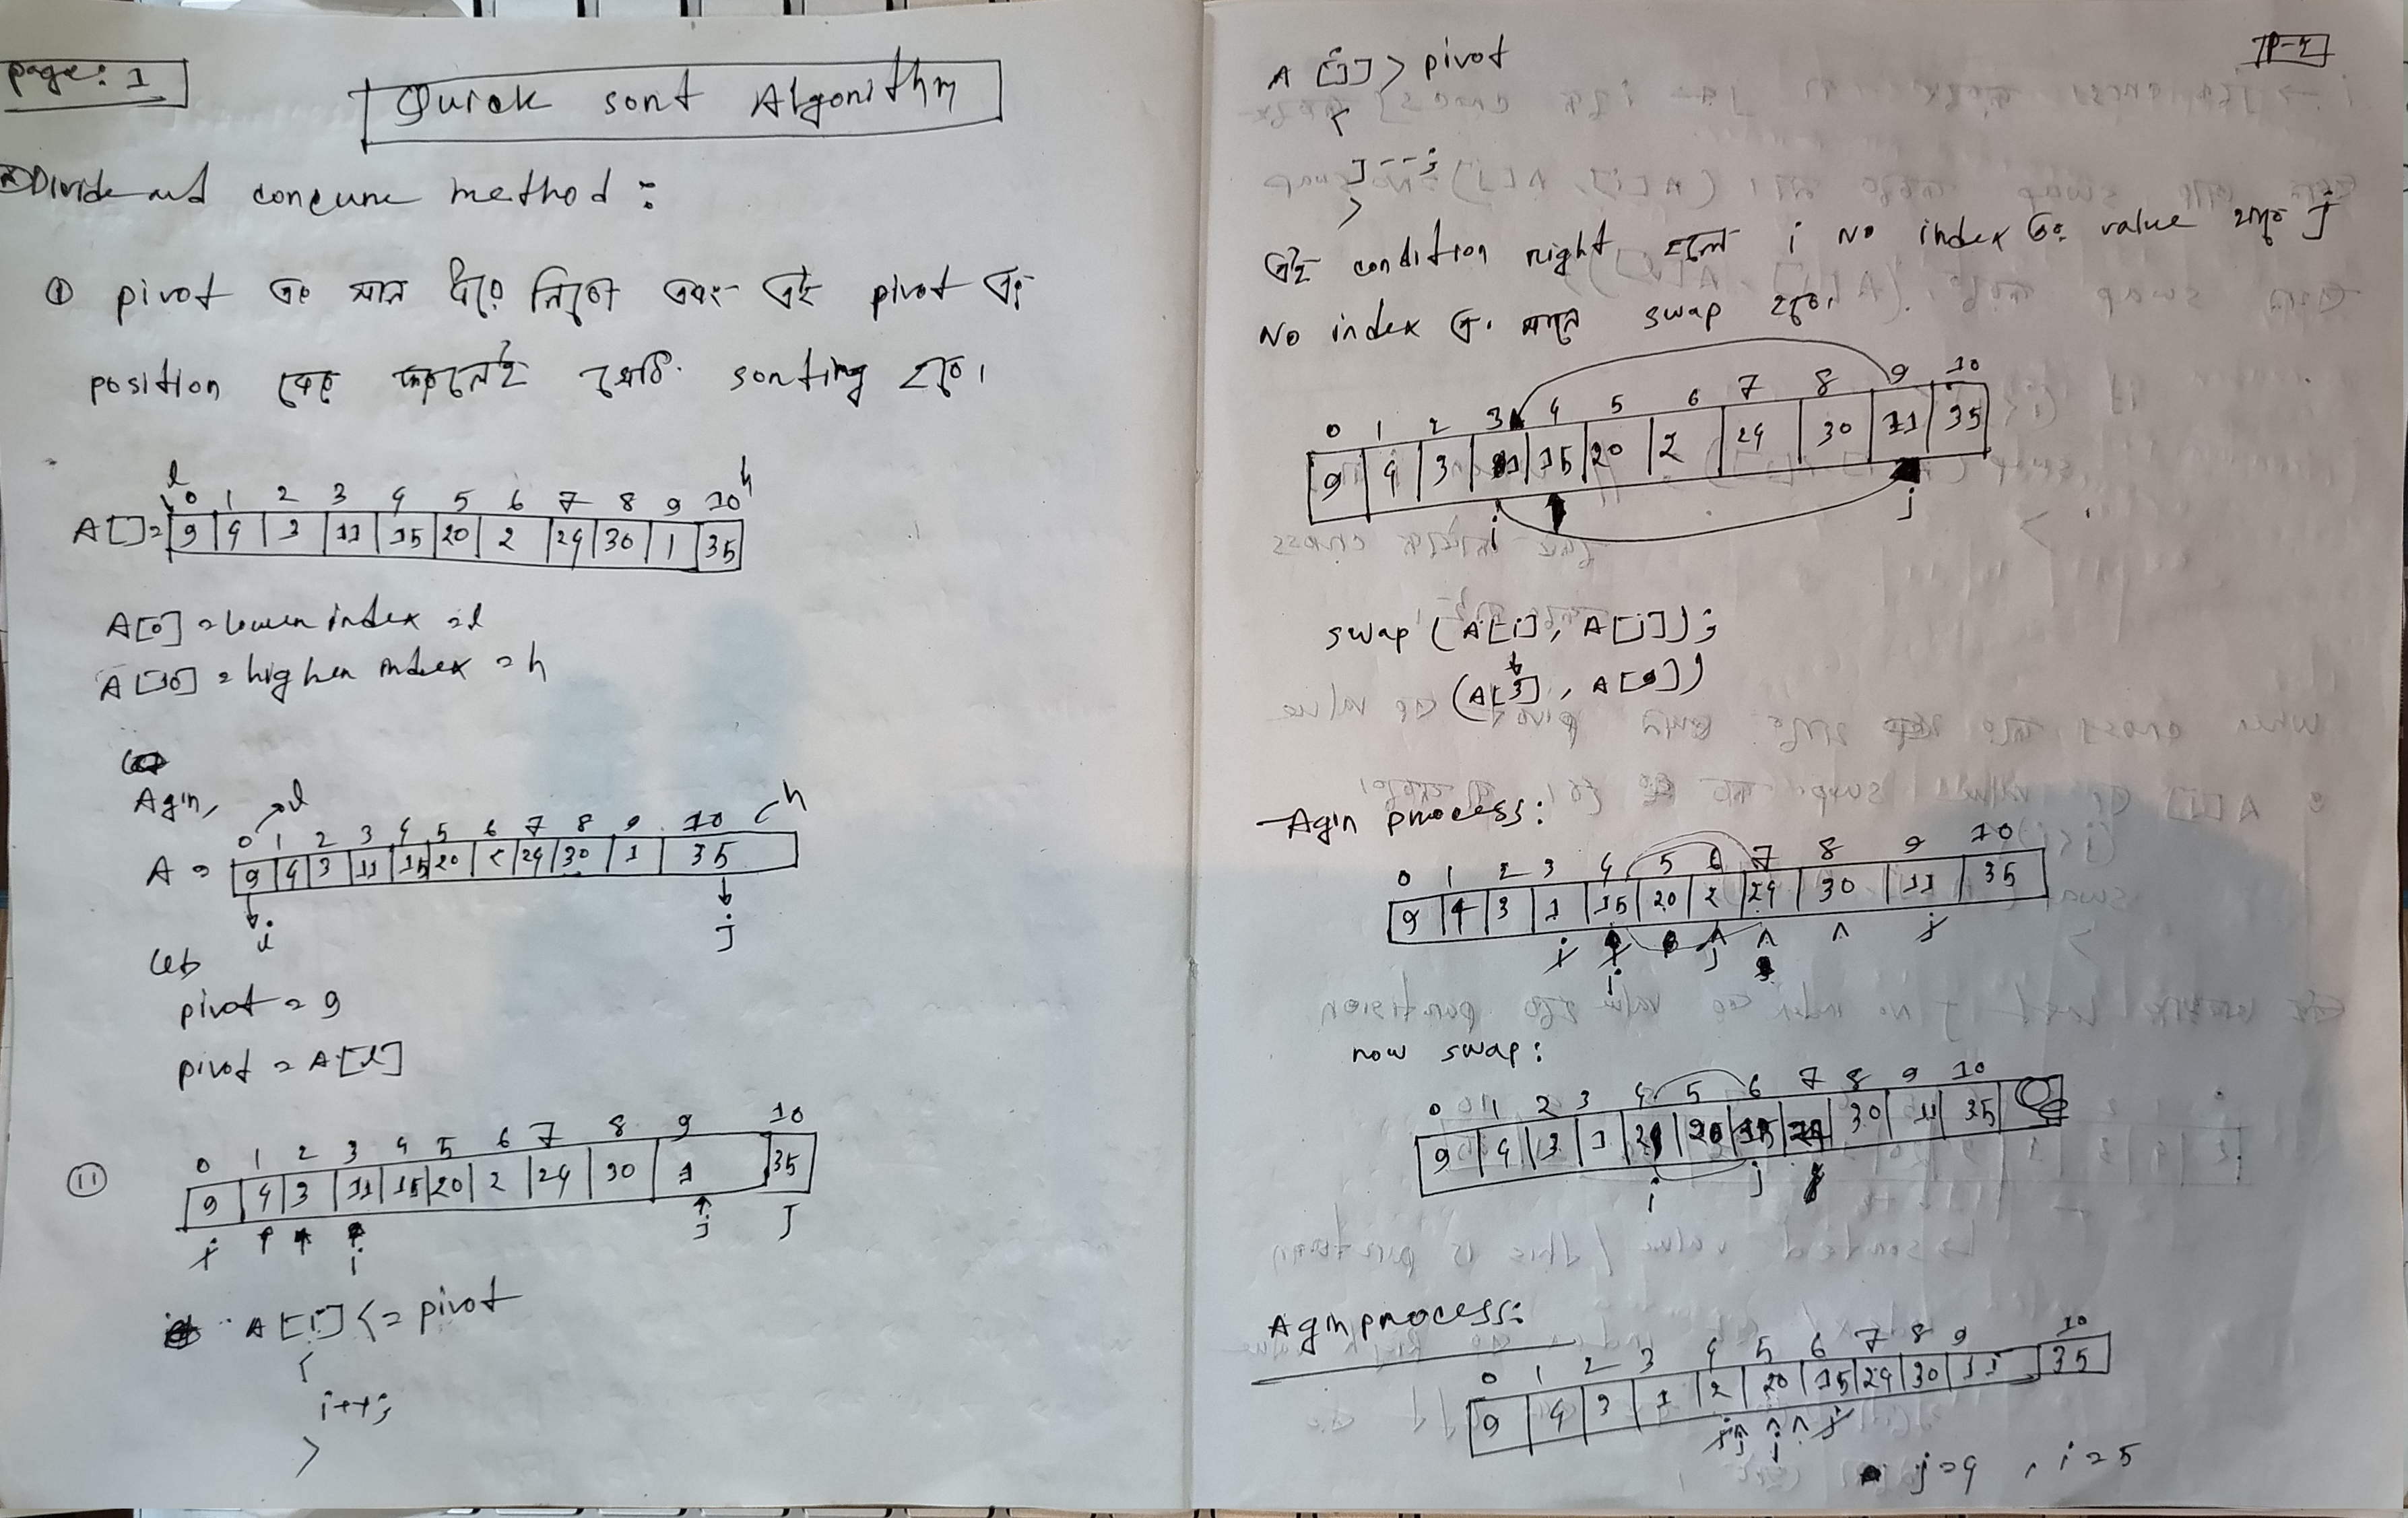 page: 1
Quick sort Algorithm
Divide and conqure method :
① pivot এর মান ধরে নিবো এবং এই pivot এর
position বের করলেই সেটি sorting হবে।
l h
0 1 2 3 4 5 6 7 8 9 10
A[]= 9 4 3 11 15 20 2 24 30 1 35
A[0] = lower index = l
A[10] = higher index = h
Agin,
l h
0 1 2 3 4 5 6 7 8 9 10
A = 9 4 3 11 15 20 2 24 30 1 35
i j
Let
pivot = 9
pivot = A[l]
0 1 2 3 4 5 6 7 8 9 10
(11) 9 4 3 11 15 20 2 24 30 1 35
i i j J
A[i] <= pivot
{
i++;
}
P-2
A[j] > pivot
{
j--;
}
এই condition right হলে i No index এর value হবে j
No index এর সাথে swap হবে।
0 1 2 3 4 5 6 7 8 9 10
9 4 3 15 20 2 24 30 11 35
i j
swap (A[i], A[j]);
(A[3], A[9])
Agin process:
0 1 2 3 4 5 6 7 8 9 10
9 4 3 1 15 20 2 24 30 11 35
i i j j
now swap:
0 1 2 3 4 5 6 7 8 9 10
9 4 3 1 2 20 15 24 30 11 35
i j
Agin process:
0 1 2 3 4 5 6 7 8 9 10
9 4 3 1 2 20 15 24 30 11 35
i j i j
j=4, i=5